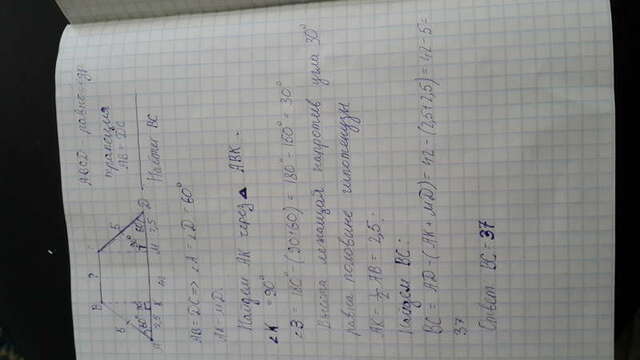 ABCD - равнобедр
трапеция
AB = DC
Найти BC
B ? 5 5
A 60° 2,5 K M 2,5 D
AB = DC => ∠A = ∠D = 60°
AK = MD.
Найдем AK через △ ABK.
∠K = 90°
∠B = 180° - (90+60) = 180° - 150° = 30°
лежащий напротив угла 30°
равна половине гипотенузы
AK = ½ AB = 2,5.
Найдем BC:
BC = AD - (AK + MD) = 42 - (2,5+2,5) = 42 - 5 =
37
Ответ BC = 37